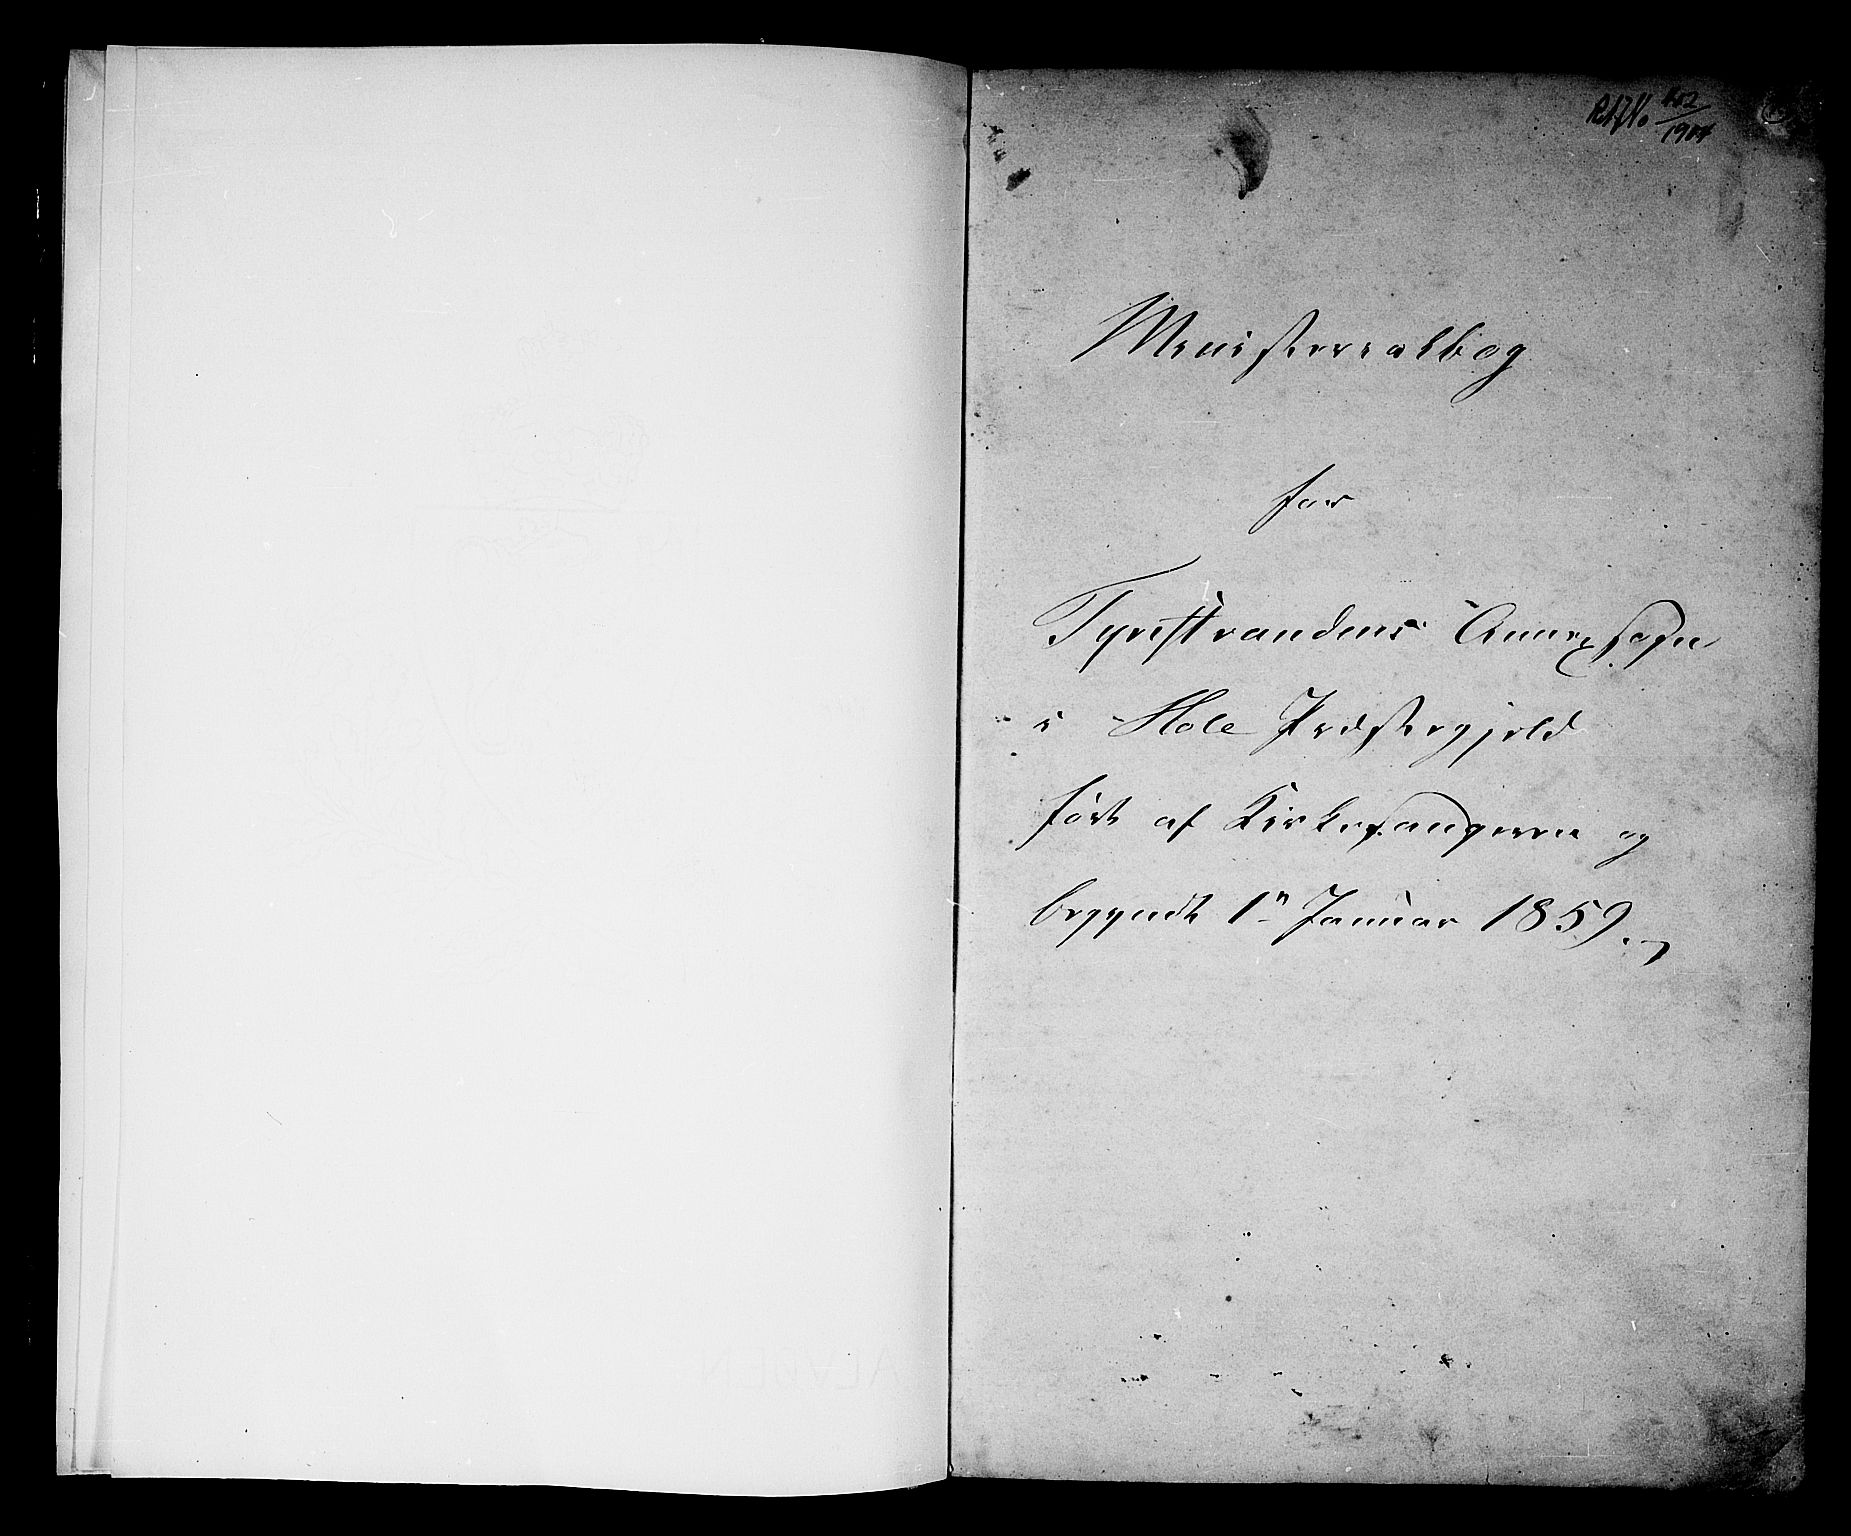 152
1904
Ministerialbog
for
Tyristrandens Annexsogn
i Hole Præstegjeld
ført af Kirkesangeren og
begyndt 1n Januar 1859.